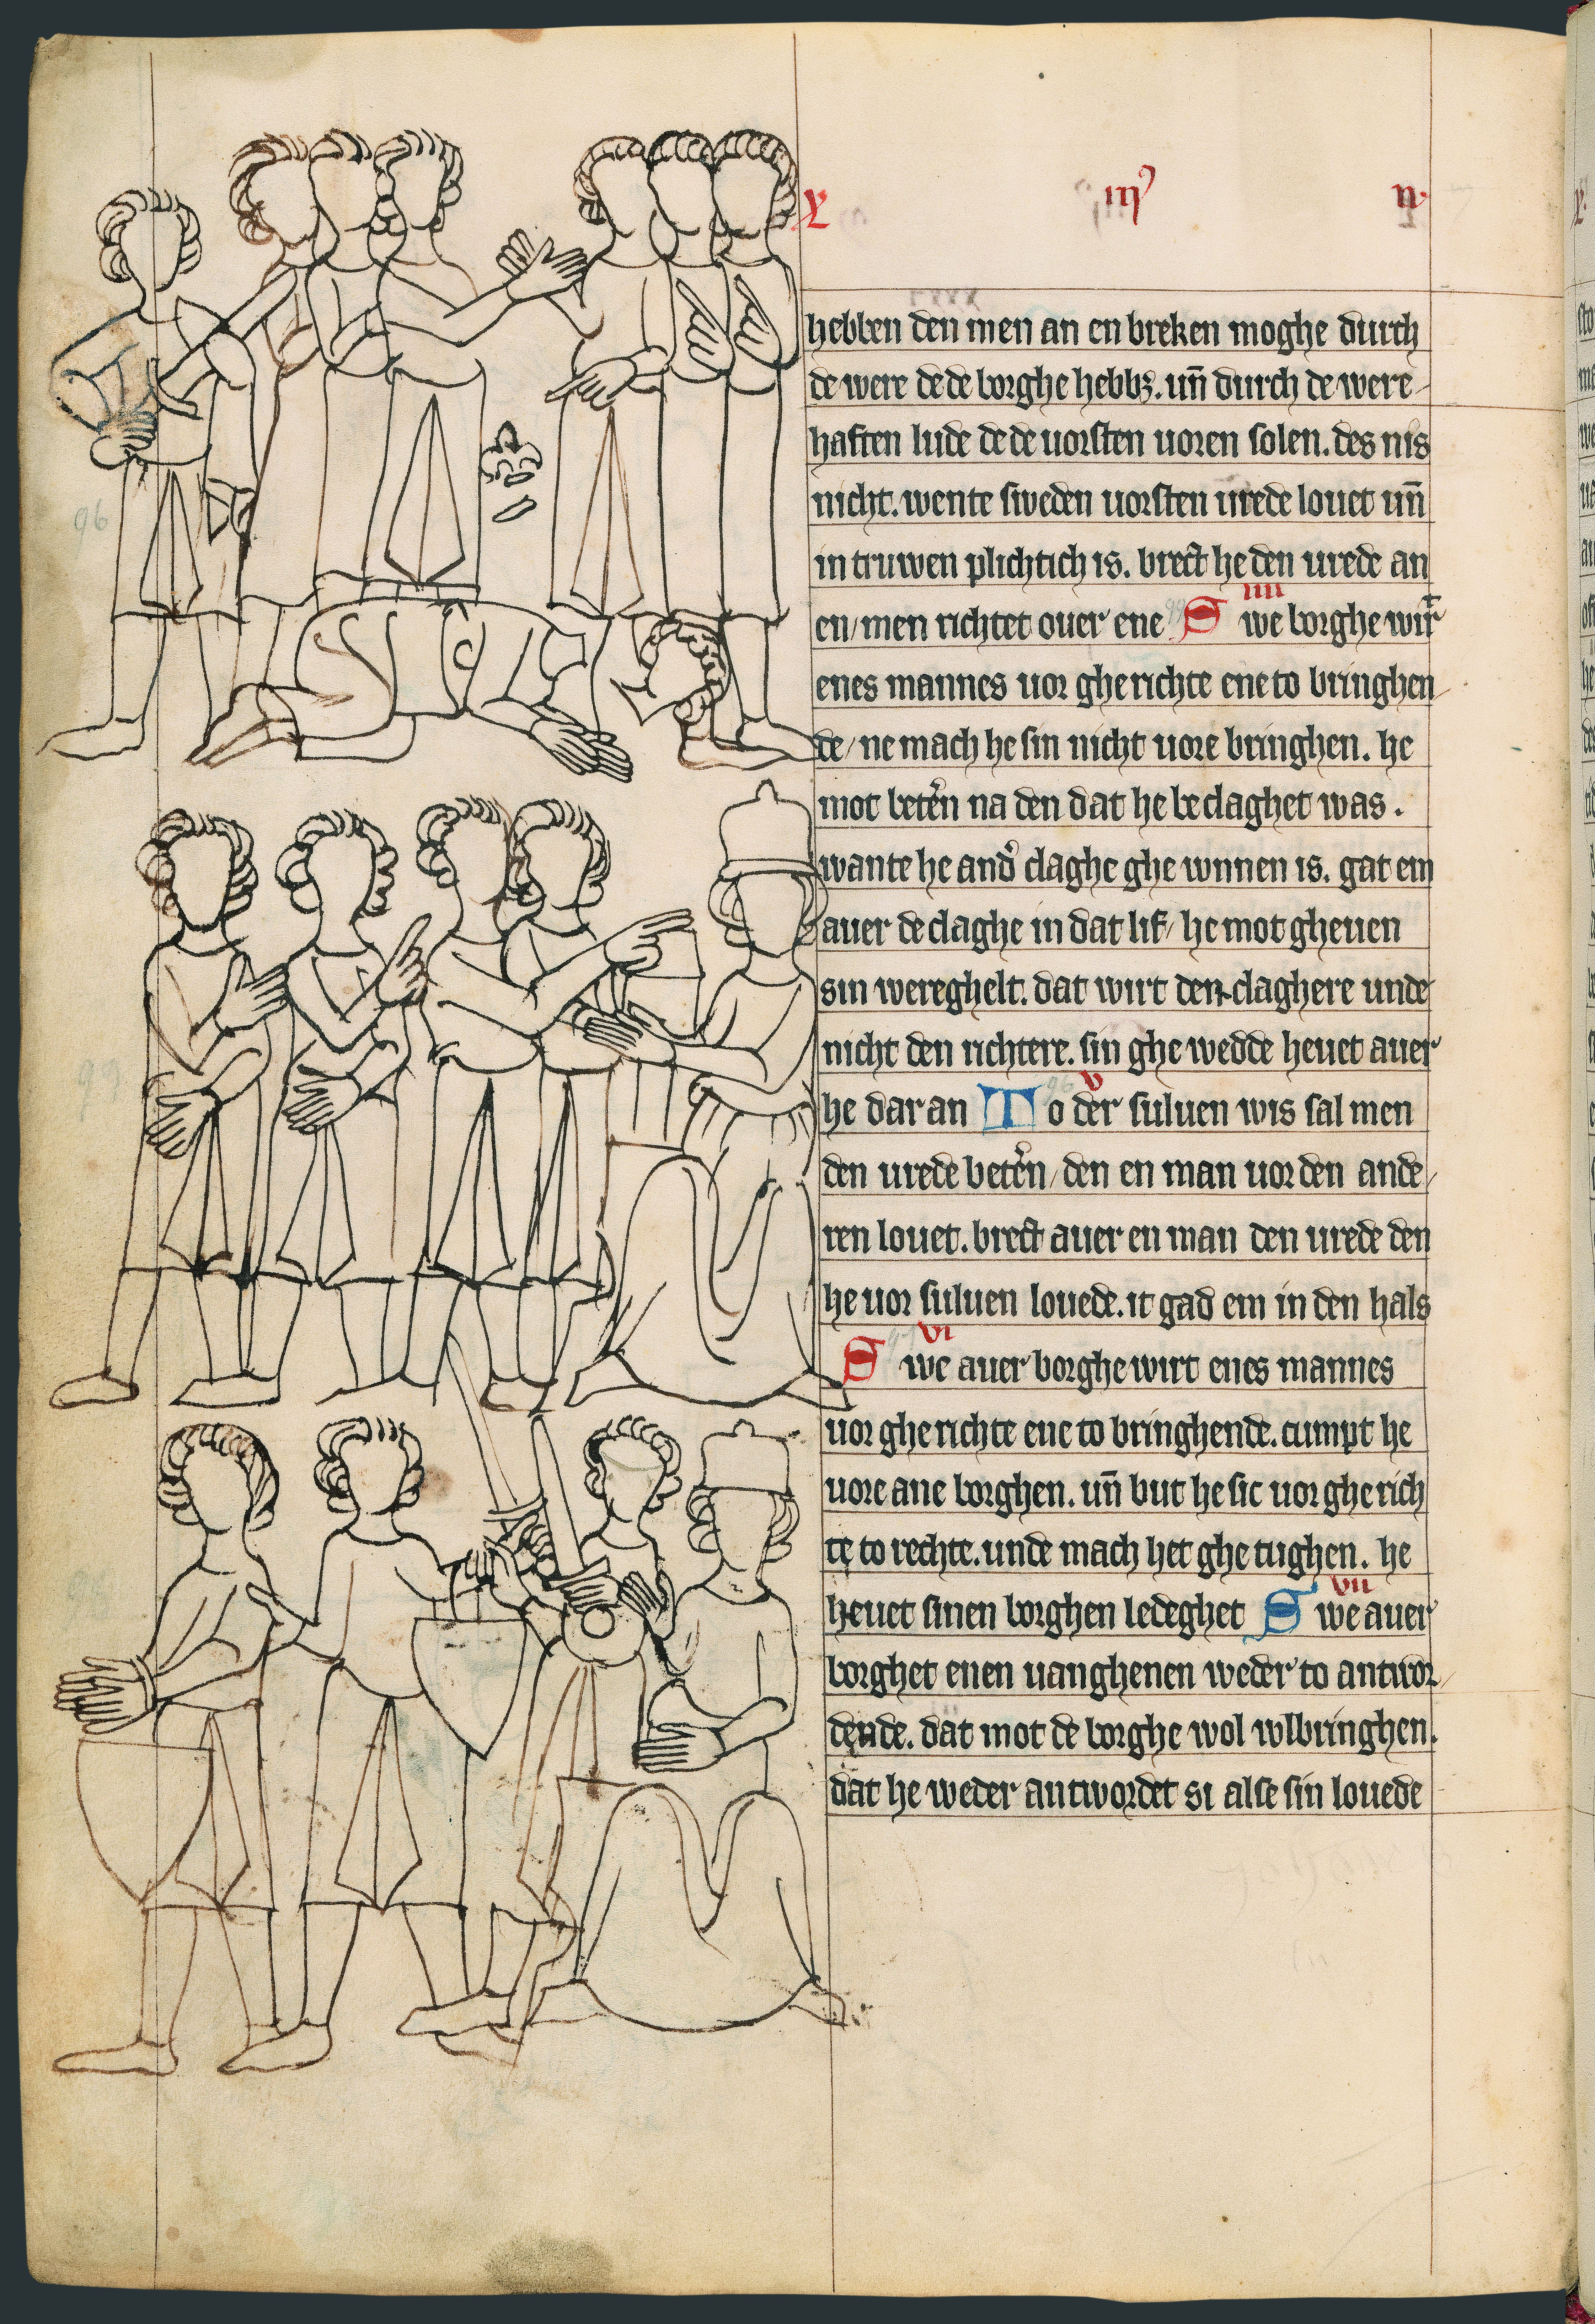 X iij n.
hebben den men an en breken moghe durch
de were de de borghe hebbꝫ. un̄ durch de were
haften lude de de uorsten uoren solen. des nis
nicht. wente sweden uorsten urede louet un̄
in truwen plichtich is. brect he den urede an
iiii
en/men richtet ouer ene Swe borghe wirt
enes mannes uor gherichte ene to bringhen
de/ne mach he sin nicht uore bringhen. he
mot beter̄n na den dat he beclaghet was.
wante he and̓ claghe ghe wnnen is. gat em
auer de claghe in dat lif/he mot gheuen
sin wereghelt. dat wirt den claghere unde
nicht den richtere. sin ghe wedde heuet auer
v
he dar an To der suluen wis sal men
den urede beter̄n/den en man uor den ande/
ren louet. brect auer en man den urede den
he uor suluen louede. it gad em in den hals
vi
Swe auer borghe wirt enes mannes
uor gherichte ene to bringhende. cumpt he
uore ane borghen. un̄ but he sic uor gherich
te to rechte. unde mach het ghe tughen. he
vii
heuet sinen borghen ledeghet Swe auer
borghet enen uanghenen weder to antwor/
dende. dat mot de borghe wol wlbringhen.
dat he weder antwordet si alse sin louede
96